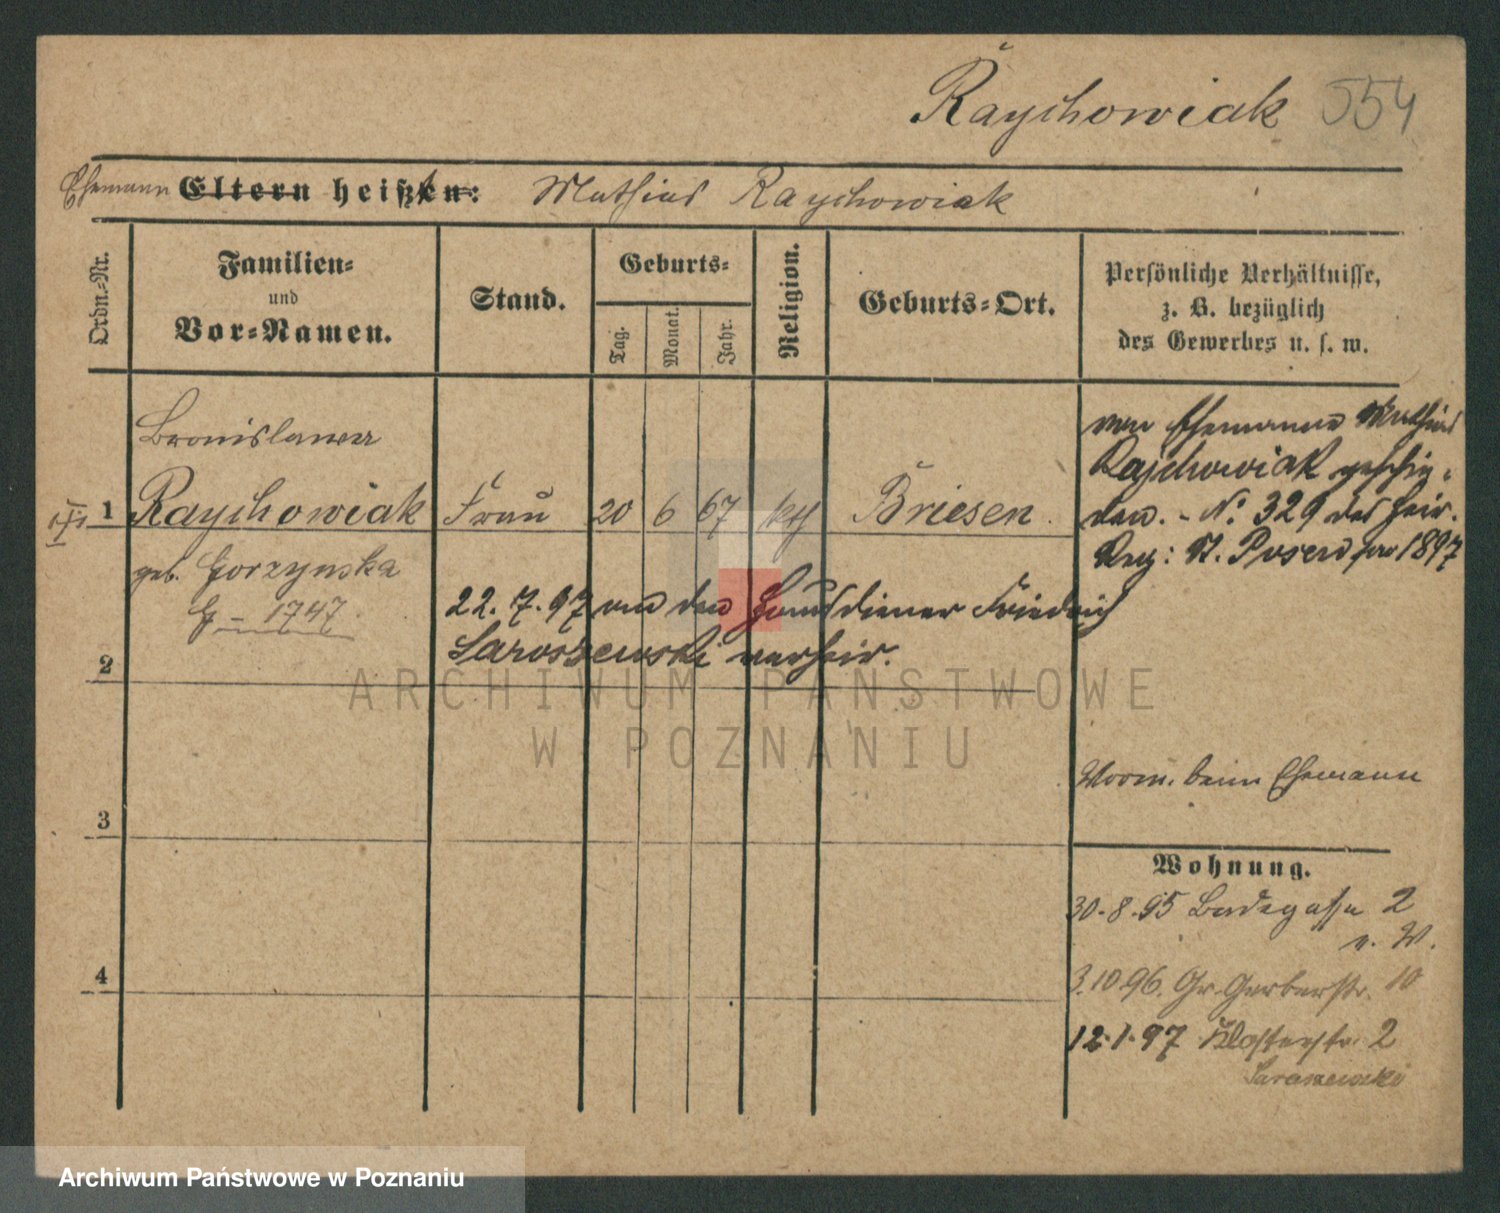 Raychowiak 554
Ehemann Eltern heißen: Mathias Raychowiak
Ordn.-Nr.
Familien-
und
Vor-Namen.
Stand.
Geburts-
Tag.
Monat.
Jahr.
Religion.
Geburts-Ort.
Persönliche Verhältnisse,
z. B. bezüglich
des Gewerbes u. s. w.
Bronislawa
1 Raychowiak Frau 20 6 67 kth Briesen
geb. Gorzynska
G - 1747
vom Ehemanne Mathias
Raychowiak geschie-
den. - N: 329 des Heir.
Reg: St. Posen pro 1897
22. 7. 97 an den Hausdiener Friedrich
Saroszewski verheir.
2
3
4
Vorm. beim Ehemann
Wohnung.
30.8.95 Badegasse 2
v. W.
3.10.96. Gr. Gerberstr. 10
12.1.97 Klosterstr. 2
Saroszewski
ARCHIWUM PAŃSTWOWE
W POZNANIU
Archiwum Państwowe w Poznaniu